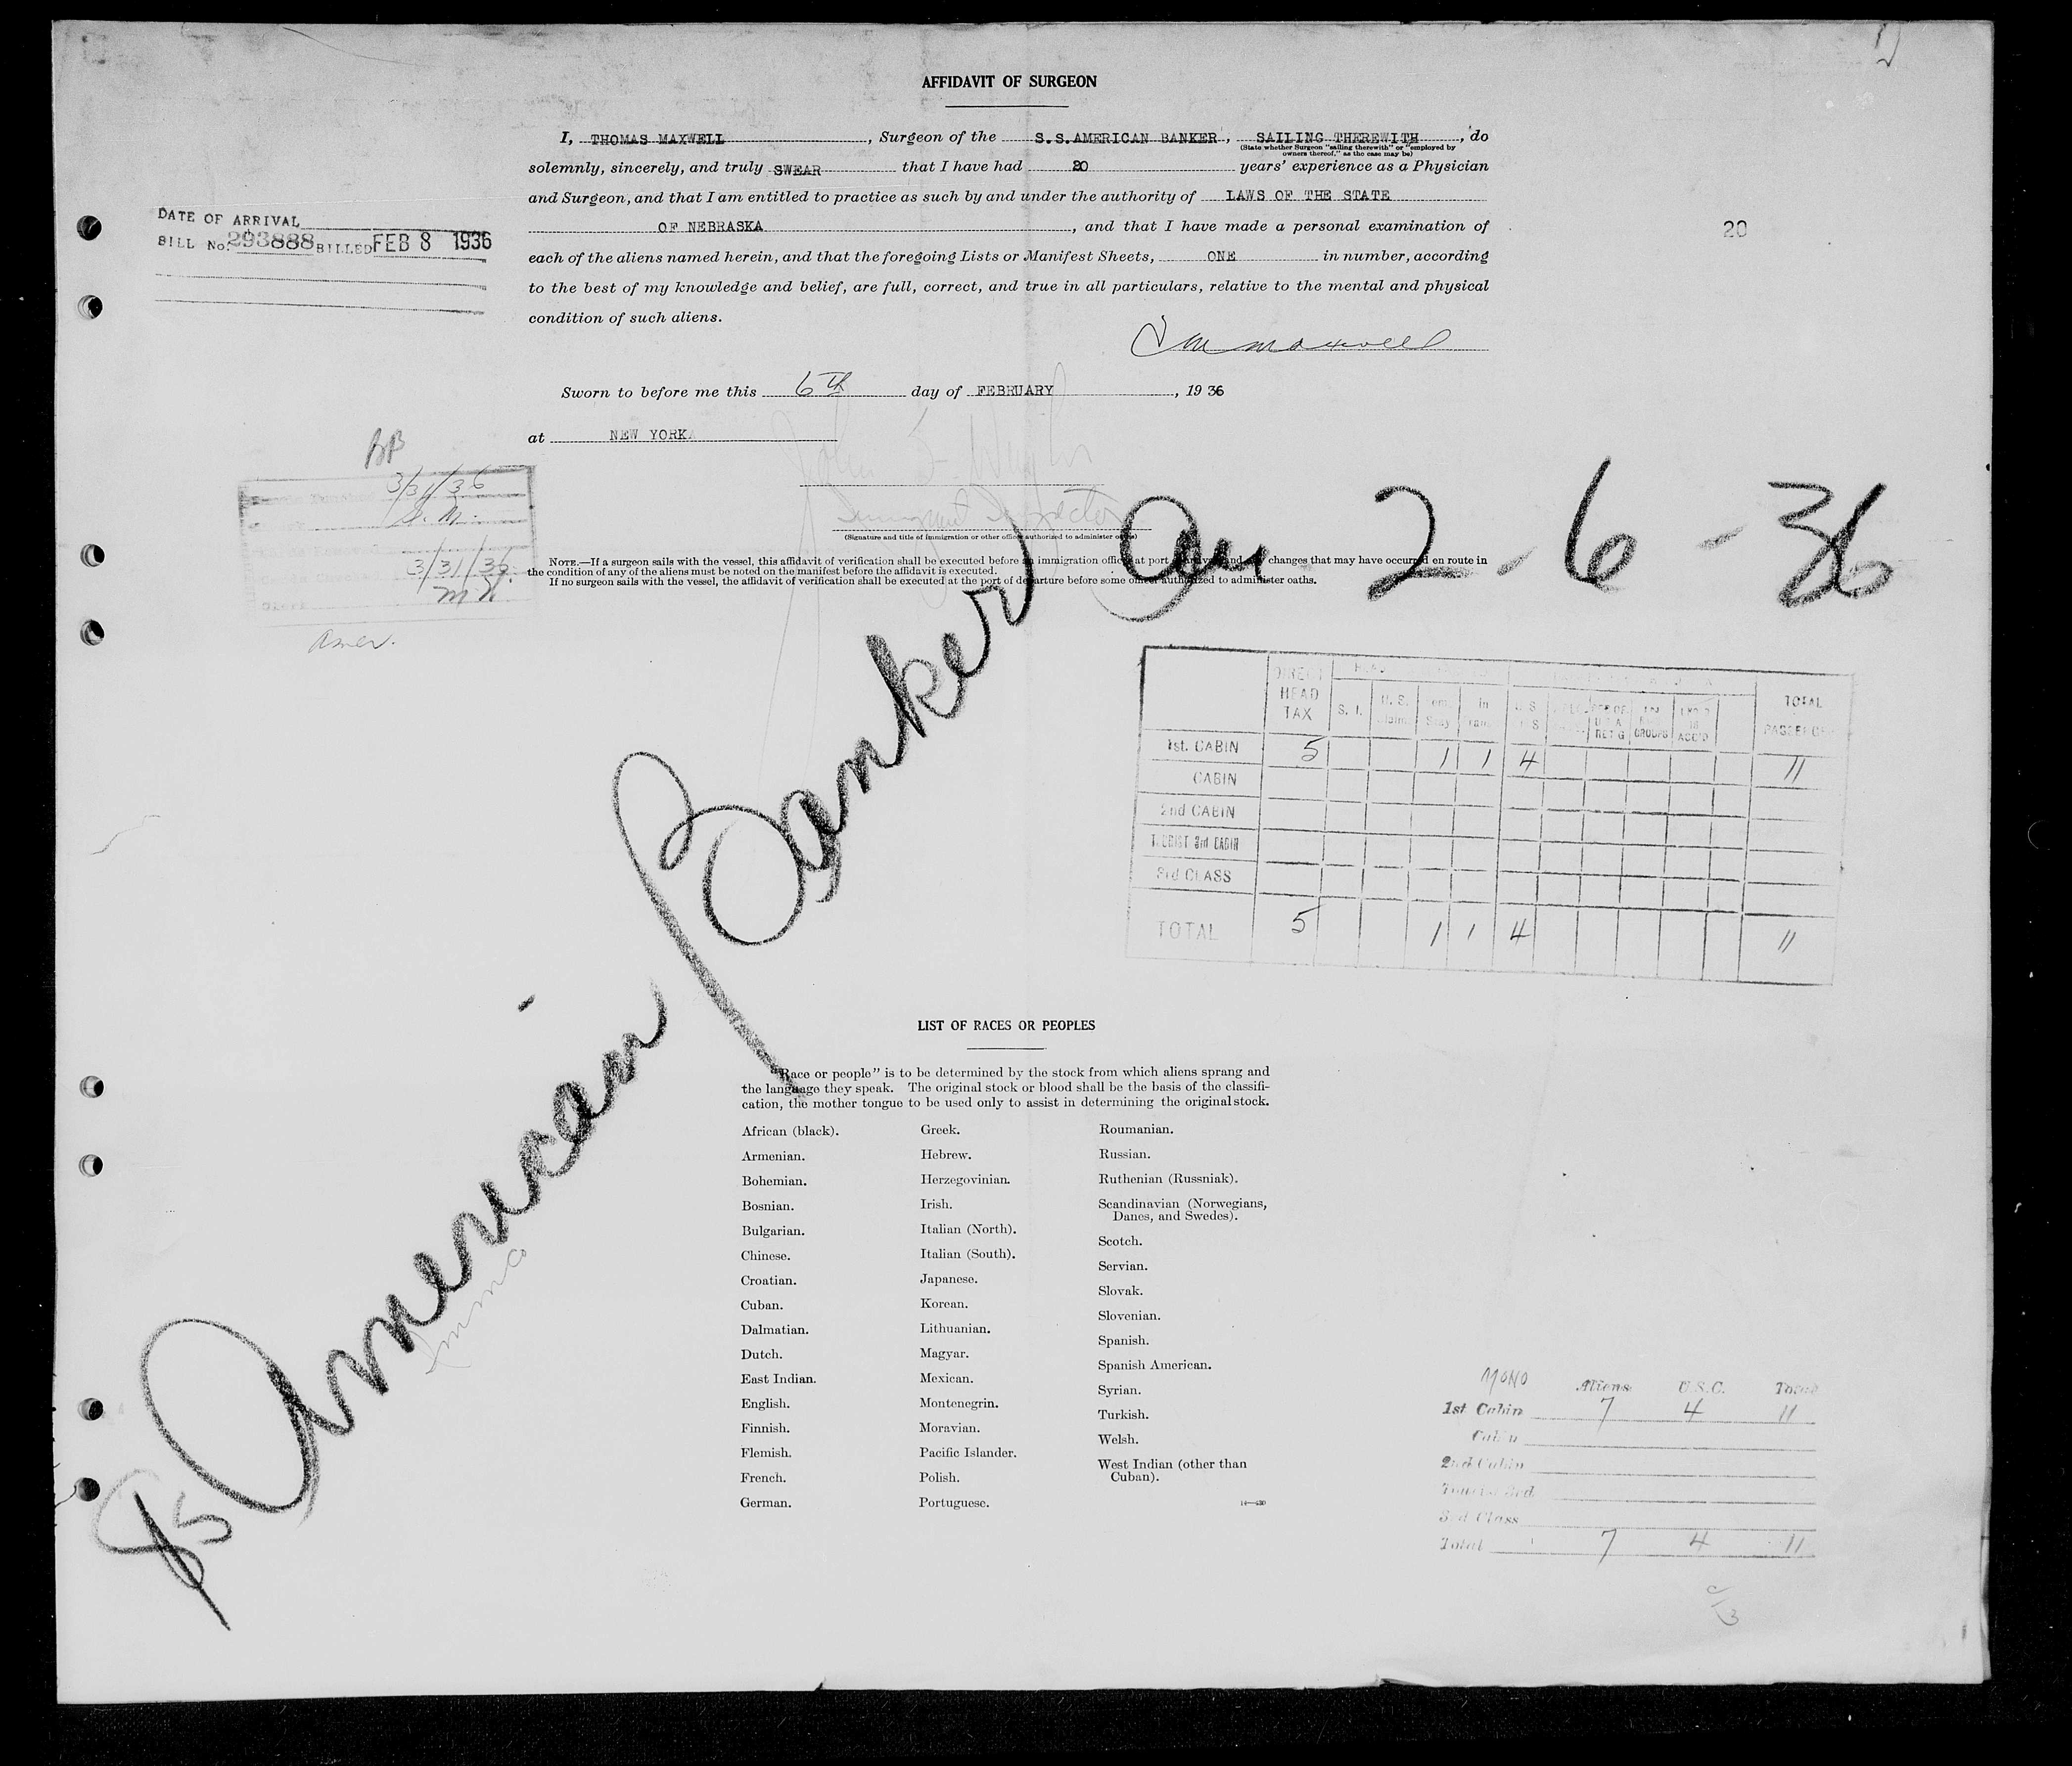 AFFIDAVIT OF SURGEON
I, THOMAS MAXWELL, Surgeon of the S.S.AMERICAN BANKER, SAILING THEREWITH, do
(State whether Surgeon "sailing therewith" or "employed by
owners thereof," as the case may be)
solemnly, sincerely, and truly SWEAR that I have had 20 years' experience as a Physician
and Surgeon, and that I am entitled to practice as such by and under the authority of LAWS OF THE STATE
OF NEBRASKA, and that I have made a personal examination of
each of the aliens named herein, and that the foregoing Lists or Manifest Sheets, ONE in number, according
to the best of my knowledge and belief, are full, correct, and true in all particulars, relative to the mental and physical
condition of such aliens.
DATE OF ARRIVAL
BILL No. 293888 BILLED FEB 8 1936
20
Maxwell
Sworn to before me this 6th day of FEBRUARY, 1936
at NEW YORK
3/31/36
3/31/36
Amer.
Immigrant Inspector
(Signature and title of immigration or other officer authorized to administer oaths)
NOTE.—If a surgeon sails with the vessel, this affidavit of verification shall be executed before an immigration officer at port of arrival and any changes that may have occurred en route in
the condition of any of the aliens must be noted on the manifest before the affidavit is executed.
If no surgeon sails with the vessel, the affidavit of verification shall be executed at the port of departure before some officer authorized to administer oaths.
American Banker Arr 2-6-36
85
DIRECT HEAD TAX S. I. U. S. TOTAL
1st. CABIN 5 1 1 4 11
CABIN
2nd CABIN
TOURIST 3rd CABIN
3rd CLASS
TOTAL 5 1 1 4 11
LIST OF RACES OR PEOPLES
"Race or people" is to be determined by the stock from which aliens sprang and
the language they speak. The original stock or blood shall be the basis of the classifi-
cation, the mother tongue to be used only to assist in determining the original stock.
African (black).
Armenian.
Bohemian.
Bosnian.
Bulgarian.
Chinese.
Croatian.
Cuban.
Dalmatian.
Dutch.
East Indian.
English.
Finnish.
Flemish.
French.
German.
Greek.
Hebrew.
Herzegovinian.
Irish.
Italian (North).
Italian (South).
Japanese.
Korean.
Lithuanian.
Magyar.
Mexican.
Montenegrin.
Moravian.
Pacific Islander.
Polish.
Portuguese.
Roumanian.
Russian.
Ruthenian (Russniak).
Scandinavian (Norwegians,
Danes, and Swedes).
Scotch.
Servian.
Slovak.
Slovenian.
Spanish.
Spanish American.
Syrian.
Turkish.
Welsh.
West Indian (other than
Cuban).
Aliens U.S.C. Total
1st Cabin 7 4 11
Cabin
2nd Cabin
Tourist 3rd
3rd Class
Total 7 4 11